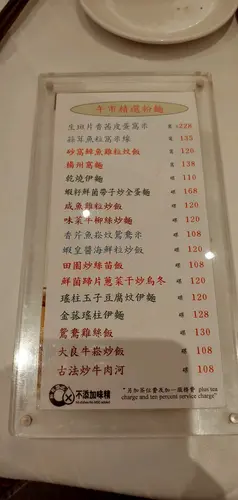 午市精選粉麵
生㷛片香茜皮蛋窩米 $228
蒜茸魚粒窩米線 135
砂窩鮮魚雞粒炆飯 窩 120
揚州窩麵 窩 138
乾燒伊麵 碟 110
蝦籽鮮菌帶子炒全蛋麵 碟 168
咸魚雞粒炒飯 碟 120
味菜牛柳絲炒麵 碟 120
香芹魚崧炆鴛鴦米 碟 108
蝦皇醬海鮮粒炒飯 碟 120
田園炒絲苗飯 碟 108
鮮菌蹄片蔥菜干炒烏冬 碟 120
瑤柱玉子豆腐炆伊麵 碟 120
金菇瑤柱伊麵 碟 128
鴛鴦雞絲飯 碟 130
大良牛崧炒飯 碟 108
古法炒牛肉河 碟 108
不添加味精
"另加茶位費及加一服務費 plus tea
charge and ten percent service charge"